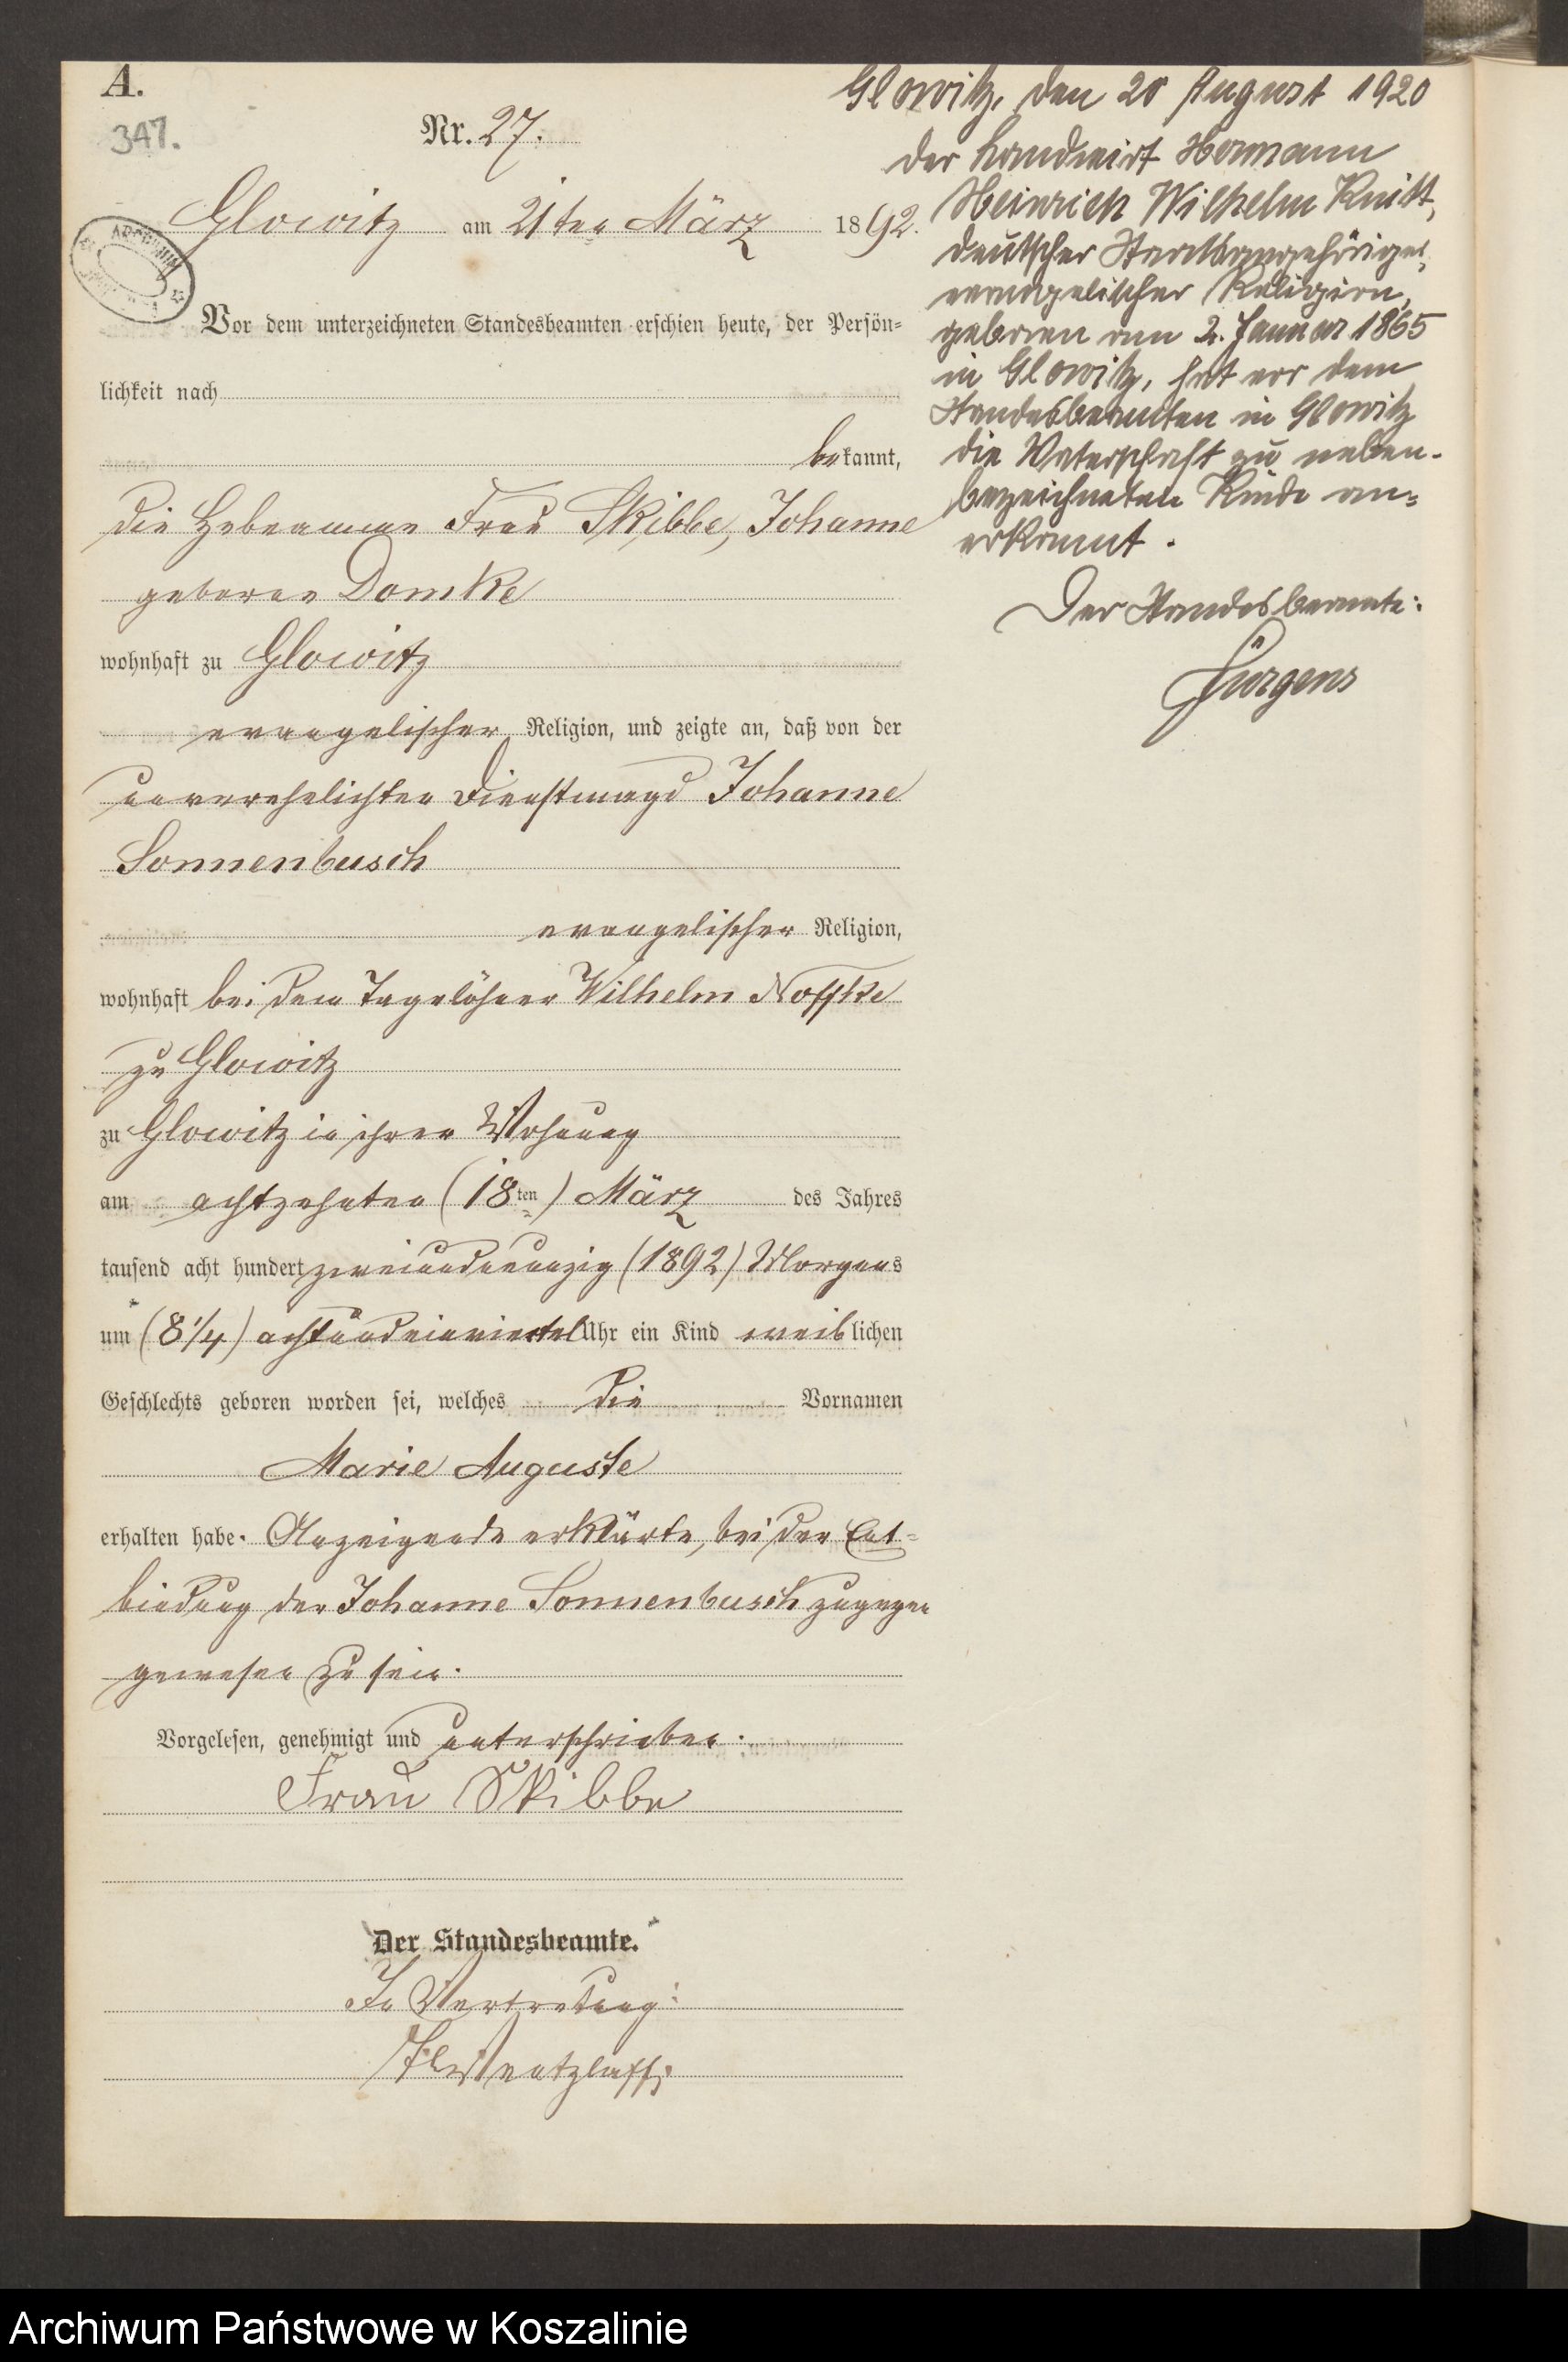 A.
347.
Nr. 27.
Glowitz am 21ten März 1892.
Vor dem unterzeichneten Standesbeamten erschien heute, der Persön-
lichkeit nach
bekannt,
die Hebeamme Frau Skibbe, Johanne
geborene Domke
wohnhaft zu Glowitz
evangelischer Religion, und zeigte an, daß von der
unverehelichten Dienstmagd Johanne
Sonnenbusch
evangelischer Religion,
wohnhaft bei dem Tagelöhner Wilhelm Noffke
zu Glowitz
zu Glowitz in ihrer Wohnung
am achtzehnten (18ten) März des Jahres
tausend acht hundert zweiundneunzig (1892) Morgens
um (8 1/4) achtundeinviertel Uhr ein Kind weiblichen
Geschlechts geboren worden sei, welches die Vornamen
Marie Auguste
erhalten habe. Anzeigende erklärte, bei der Ent-
bindung der Johanne Sonnenbusch zugegen
gewesen zu sein.
Vorgelesen, genehmigt und unterschrieben.
Frau Skibbe
Der Standesbeamte.
In Vertretung:
Wentzlaff.
Glowitz, den 20 August 1920
Der Landwirt Hermann
Heinrich Wilhelm Knitt,
deutscher Staatsangehöriger,
evangelischer Religion,
geboren am 2. Januar 1865
in Glowitz, hat vor dem
Standesbeamten in Glowitz
die Vaterschaft zu neben-
bezeichneten Kinde an-
erkannt.
Der Standesbeamte:
Jürgens
Archiwum Państwowe w Koszalinie